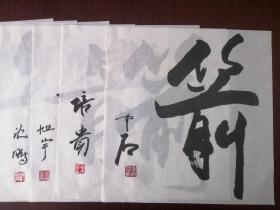 箭
中石
培贵
旭宇
沈鹏